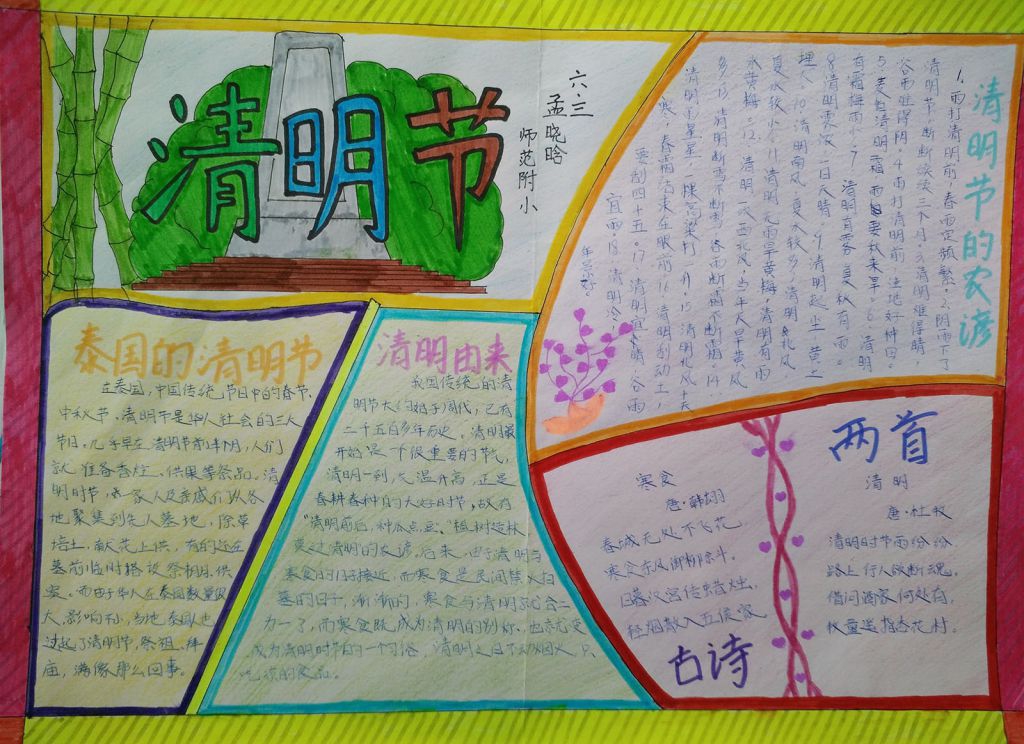 清明节
六.三
孟晓晗
师范附小
清明节的农谚
1、雨打清明前,春雨定频繁。2、阴雨下了
清明节,断断续续三个月。3、清明难得晴,
谷雨难得阴。4、雨打清明前,洼地好种田。
5、麦怕清明霜,谷雨要秋来旱。6、清明
有霜梅雨少。7、清明有雾,夏秋有雨。
8、清明雾浓,一日天晴。9、清明起尘,黄土
埋人。10、清明南风,夏水较多;清明北风,
夏水较少。11、清明无雨旱黄梅,清明有雨
水黄梅。12、清明一吹西北风,当年天旱黄风
多。13、清明断雪不断雪,谷雨断霜不断霜。14、
清明
一棵高粱打一
15、清明北风十天
寒,春霜结束在眼前。16、清明刮动土,
要刮四十五。17、清明宜晴,谷雨
宜雨。18、清明冷,
年景好。
泰国的清明节
在泰国,中国传统节日中的春节、
中秋节、清明节是华人社会的三大
节日。几乎早在清明节前半个月,人们
就准备香烛、供果等祭品。清
明时节,
家人及亲戚们从各
地聚集到先人墓地,除草
培土,献花上供,有的还在
墓前临时搭设祭棚,供
宴。而由于华人在泰国数量很
大,影响
当地泰国人也
过起了清明节,祭祖、拜
庙,满像那么回事。
清明由来
我国传统的清
明节大约始于周代,已有
二千五百多年历史。清明最
开始是一个很重要的节气,
清明一到,气温升高,正是
春耕春种的大好时节,故有
“清明前后,种瓜点豆。”“植树造林,
莫过清明”的农谚。后来,由于清明与
寒食的日子接近,而寒食是民间禁火扫
墓的日子,渐渐的,寒食与清明就合二
为一了,而寒食既成为清明的别称,也
变
成为清明时节的一个习俗,清明之日不动烟火,只
吃凉的食品。
两首
古诗
寒食
唐·韩翃
春城无处不飞花
寒食东风御柳斜。
日暮汉宫传蜡烛,
轻烟散入五侯家
清明
唐·杜牧
清明时节雨纷纷,
路上行人欲断魂。
借问酒家何处有,
牧童遥指杏花村。